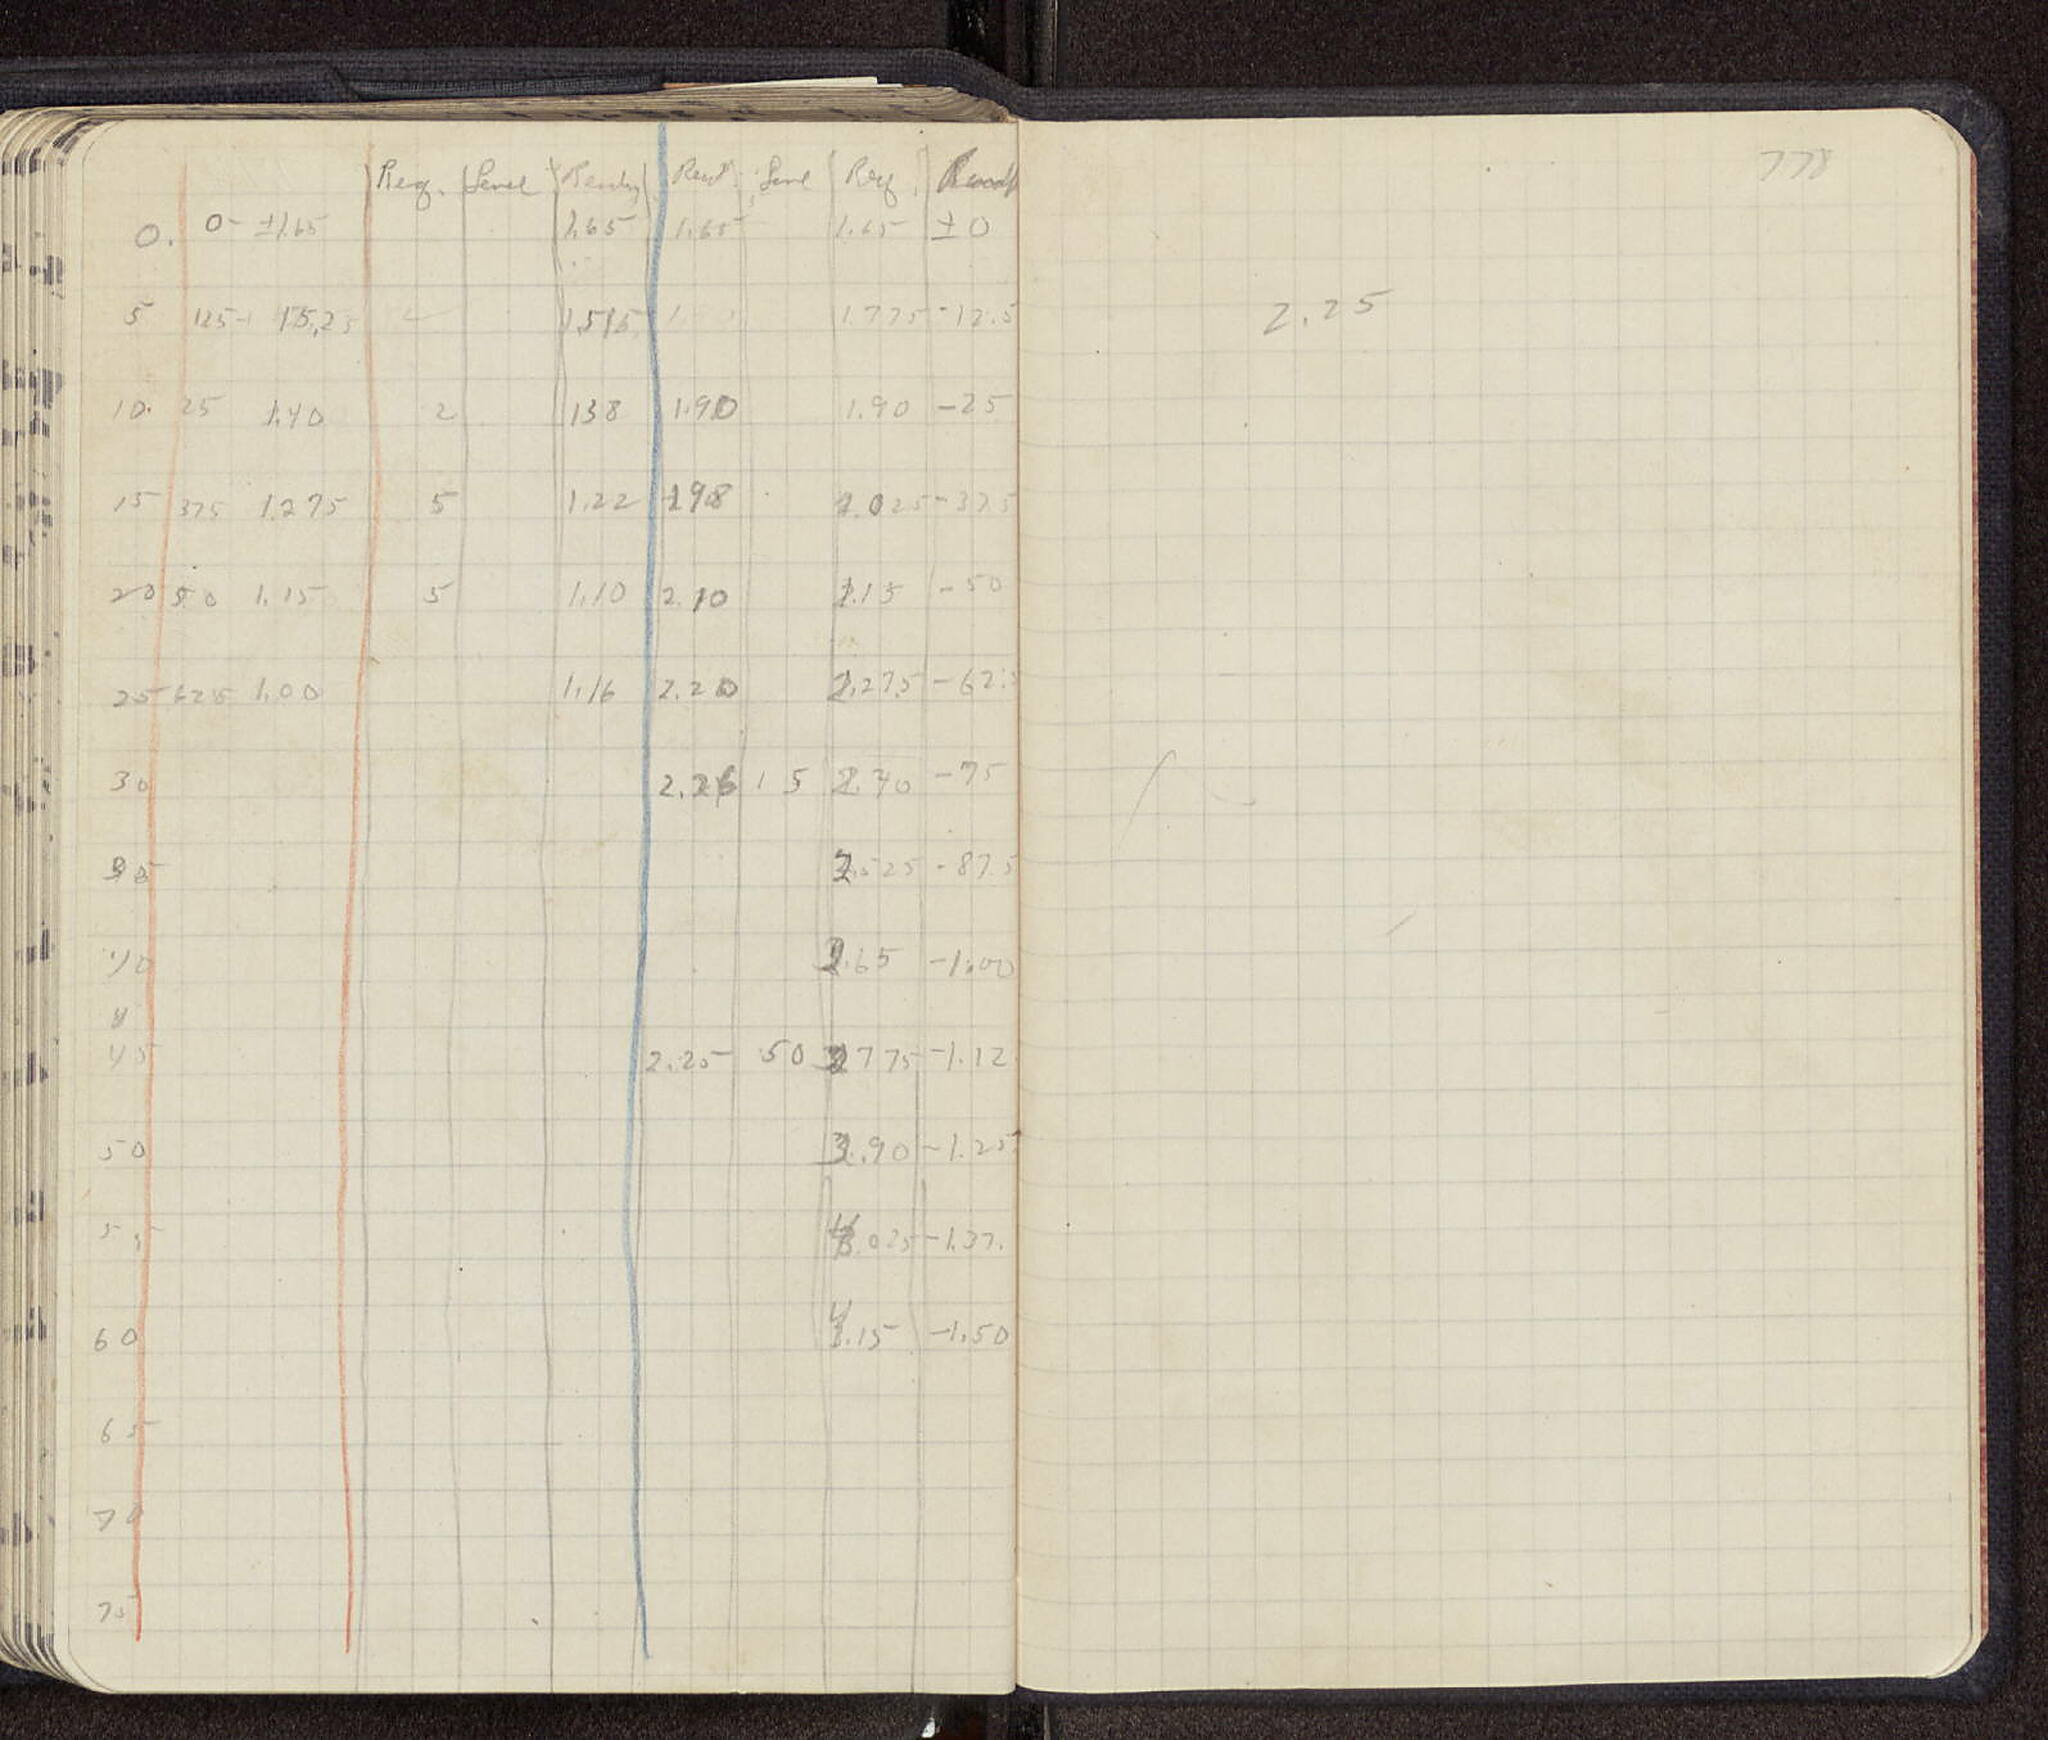 Req. Level Reading Read. Level Req. Read
0. 0- ±1.65 1.65 1.65 1.65 ±0
5 125- 15.25 1.515 1.775 -12.5
10. 25 1.40 2 138 1.90 1.90 -25
15 375 1.275 5 1.22 198 2.025 -37.5
20 50 1.15 5 1.10 2.10 2.15 -50
25 625 1.00 1.16 2.20 2.275 -62.5
30 2.26 15 2.40 -75
35 2.525 -87.5
40 2.65 -1.00
45 2.25 50 2775 -1.12
50 2.90 -1.25
55 .025 -1.37.
60 .15 -1.50
65
70
75
778
2.25